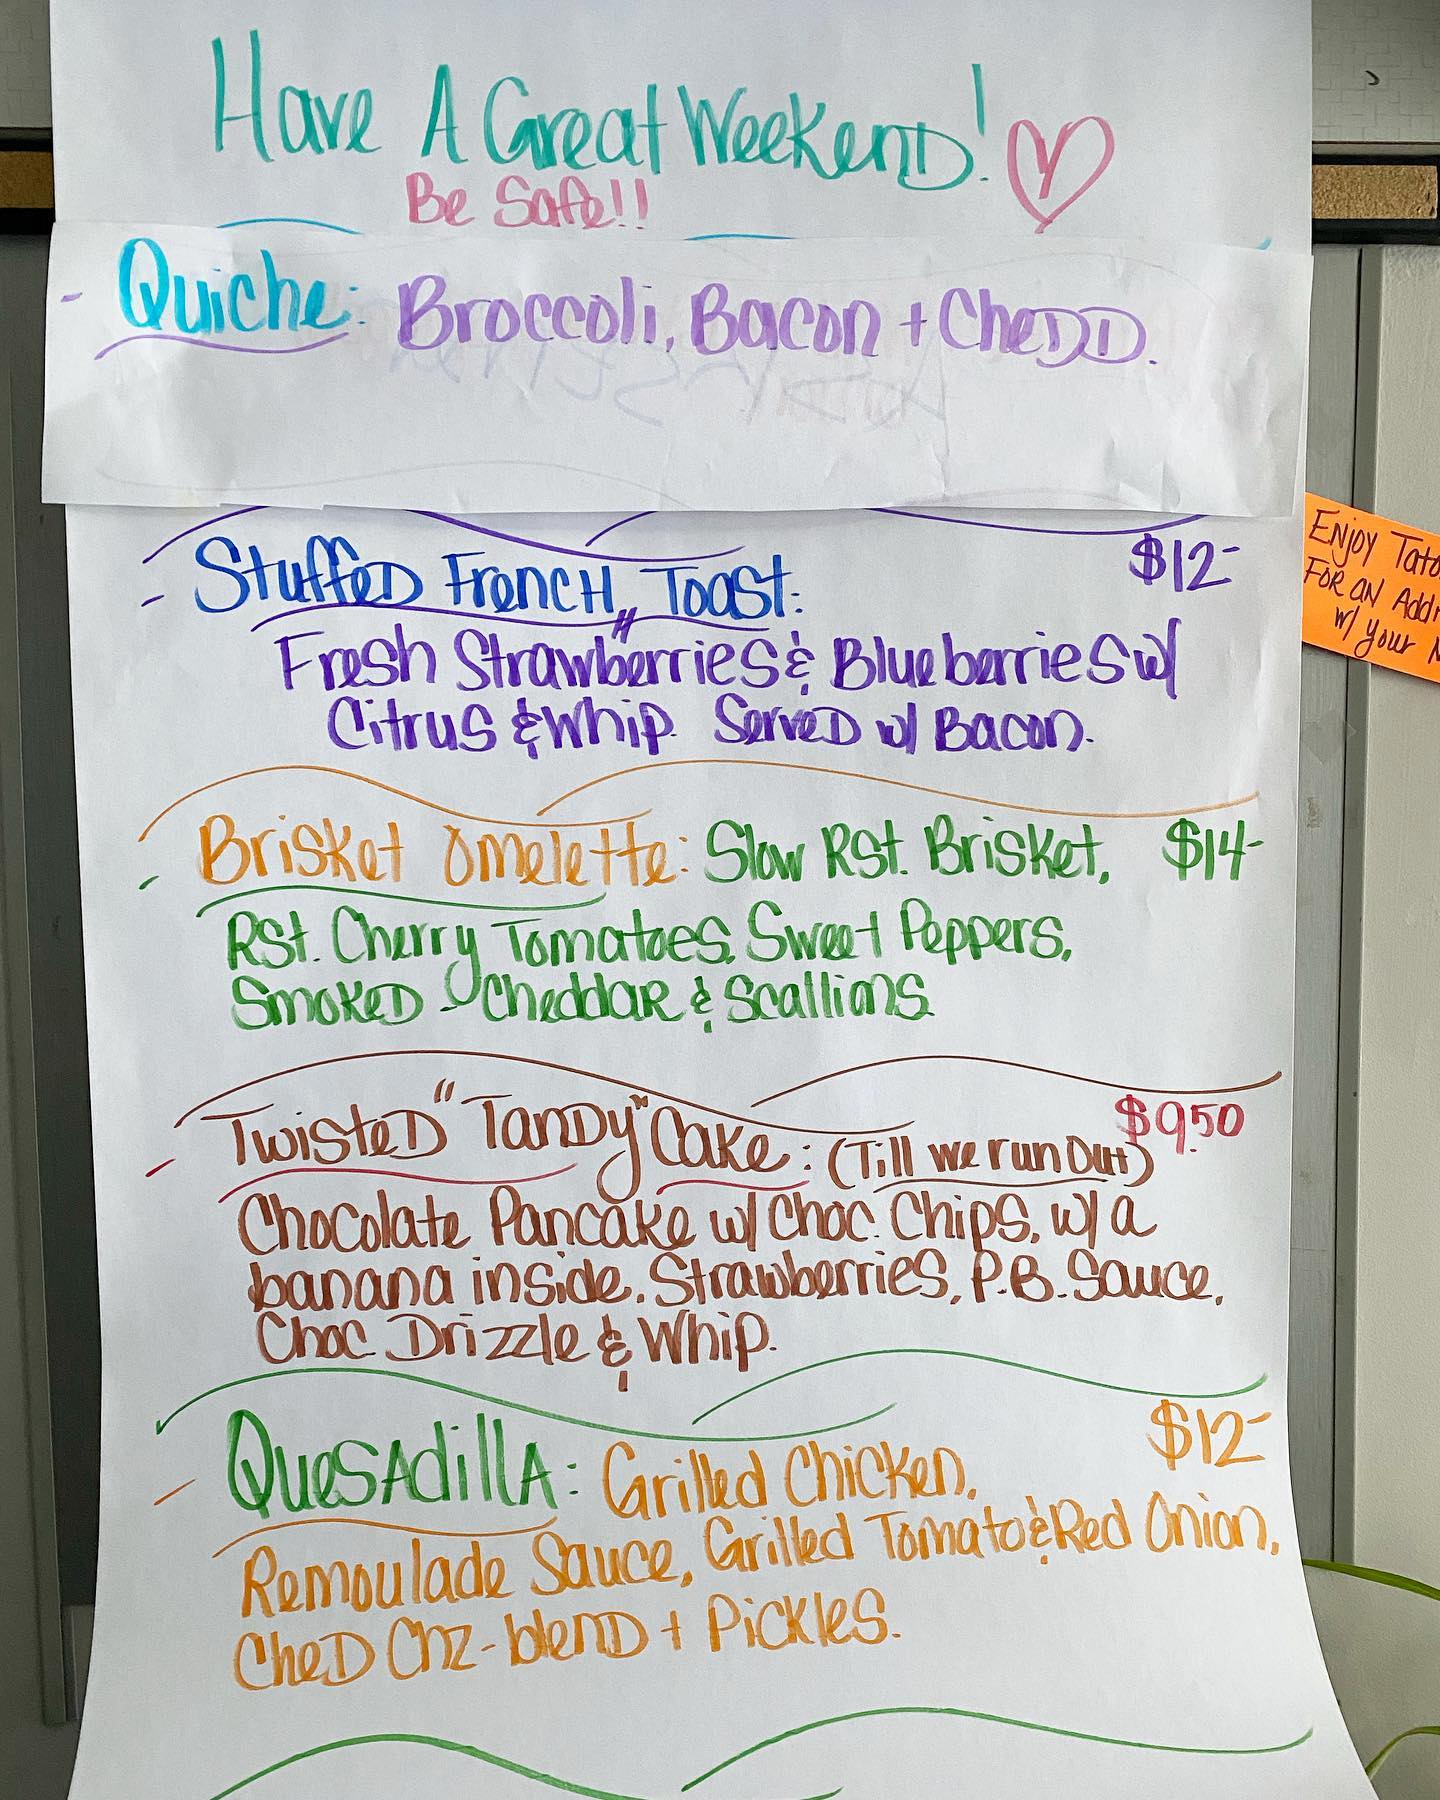 Have A Great Weekend!
Be Safe!!
- Quiche: Broccoli, Bacon + Chedd.
- Stuffed French Toast: $12-
Fresh Strawberries & Blueberries w/
Citrus & Whip. Served w/ Bacon.
- Brisket Omelette: Slow Rst. Brisket, $14-
Rst. Cherry Tomatoes, Sweet Peppers,
Smoked - Cheddar & Scallions.
- Twisted "Tandy" Cake: (Till we run out) $9.50
Chocolate Pancake w/ Choc. Chips, w/ a
banana inside, Strawberries, P.B. Sauce,
Choc Drizzle & Whip.
- Quesadilla: Grilled Chicken, $12-
Remoulade Sauce, Grilled Tomato & Red Onion,
Ched Chz-blend + Pickles.
Enjoy
For an
w/ your